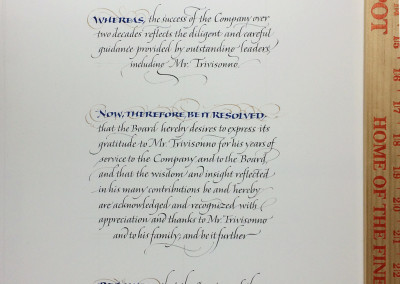 WHEREAS, the success of the Company over
two decades reflects the diligent and careful
guidance provided by outstanding leaders,
including Mr. Trivisonno
NOW, THEREFORE, BE IT RESOLVED
that the Board hereby desires to express its
gratitude to Mr. Trivisonno for his years of
service to the Company and to the Board,
and that the wisdom and insight reflected
in his many contributions be and hereby
are acknowledged and recognized with
appreciation and thanks to Mr. Trivisonno
and to his family; and be it further—
OOT
HOME OF THE FINE